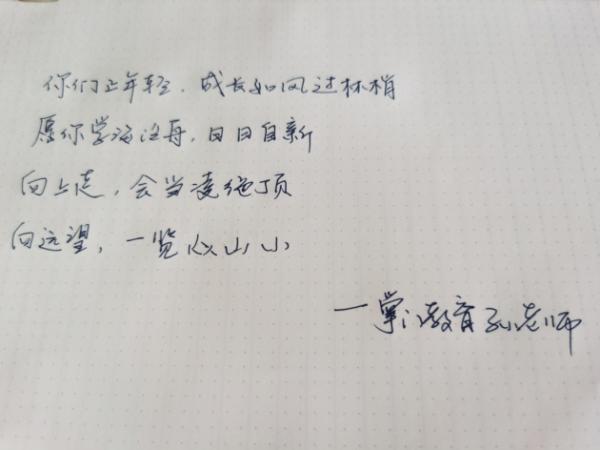 你们正年轻,成长如风过林梢
愿你学海泛舟,日日自新
向上走,会当凌绝顶
向远望,一览众山小
一掌门教育孙老师